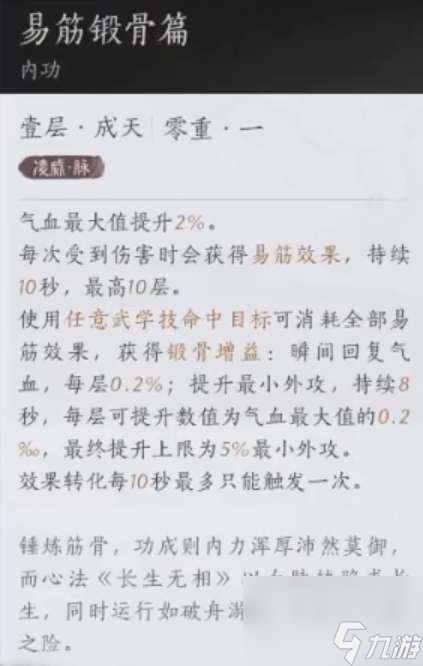 易筋锻骨篇
内功
壹层·成天 零重·一
凌威·脉
气血最大值提升2%。
每次受到伤害时会获得易筋效果，持续
10秒，最高10层。
使用任意武学技命中目标可消耗全部易
筋效果，获得锻骨增益：瞬间回复气
血，每层0.2%；提升最小外攻，持续8
秒，每层可提升数值为气血最大值的0.2
‰，最终提升上限为5%最小外攻。
效果转化每10秒最多只能触发一次。
锤炼筋骨，功成则内力浑厚沛然莫御，
而心法《长生无相》以
生，同时运行如破舟游
之险。
九游